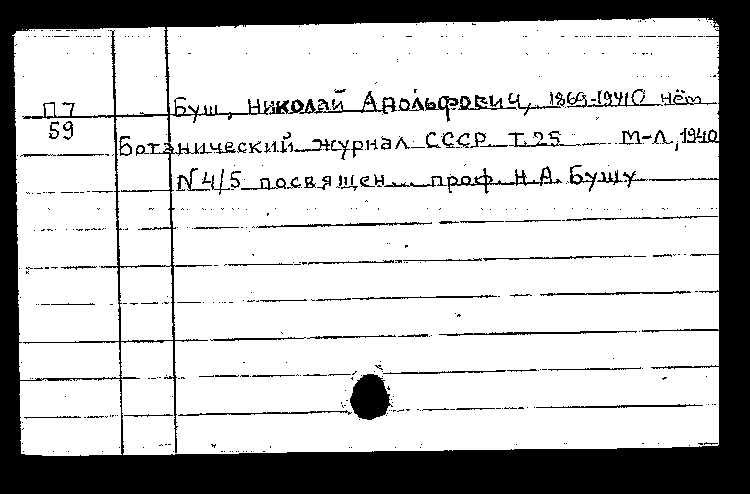 П7 Буш, Николай Адольфович, 1869-1940 нём
59
Ботанический журнал СССР Т.25 М-Л, 1940
N 4/5 посвящен... проф. Н.А. Бушу